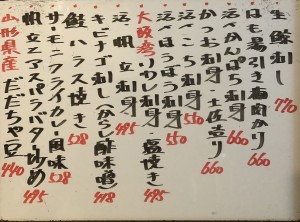 生鯨刺し 770
はも湯引き梅肉かり 660
活〆かんぱち刺身 660
かつお刺身・土佐造り 550
活〆ほうぼう刺身 550
大阪寿 刺身・塩焼き 495
活帆立刺身 495
キビナゴ刺し(からし酢味噌) 418
鮭ハラス焼き 528
サーモンフライカレー風味 528
帆立とアスパラバター炒め 495
山形県産だだちゃ豆 440